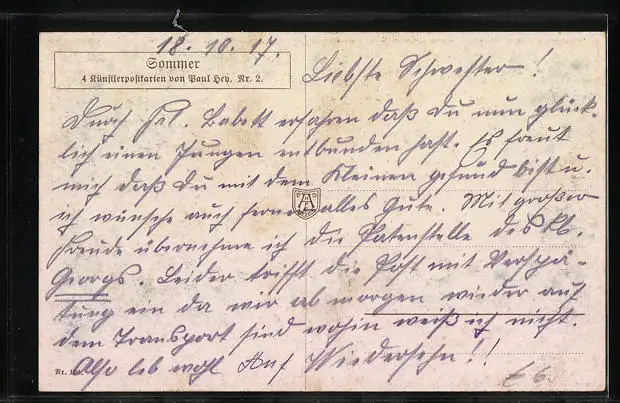 18. 10. 17.
Sommer
4 Künstlerpostkarten von Paul Hey. Nr. 2.
Liebste Schwester!
Durch Frl. Babett erfahren daß Du nun glück-
lich einen Jungen entbunden hast. Es freut
mich daß Du mit dem Kleinen gesund bist u.
ich wünsche auch ferner alles Gute. Mit großer
Freude übernehme ich die Patenstelle des kl.
Georgs. Leider trifft die Post mit Verspä-
tung ein da wir ab morgen wieder auf
dem Transport sind wohin weiß ich nicht.
Also leb wohl Auf Wiedersehn!!
Nr.